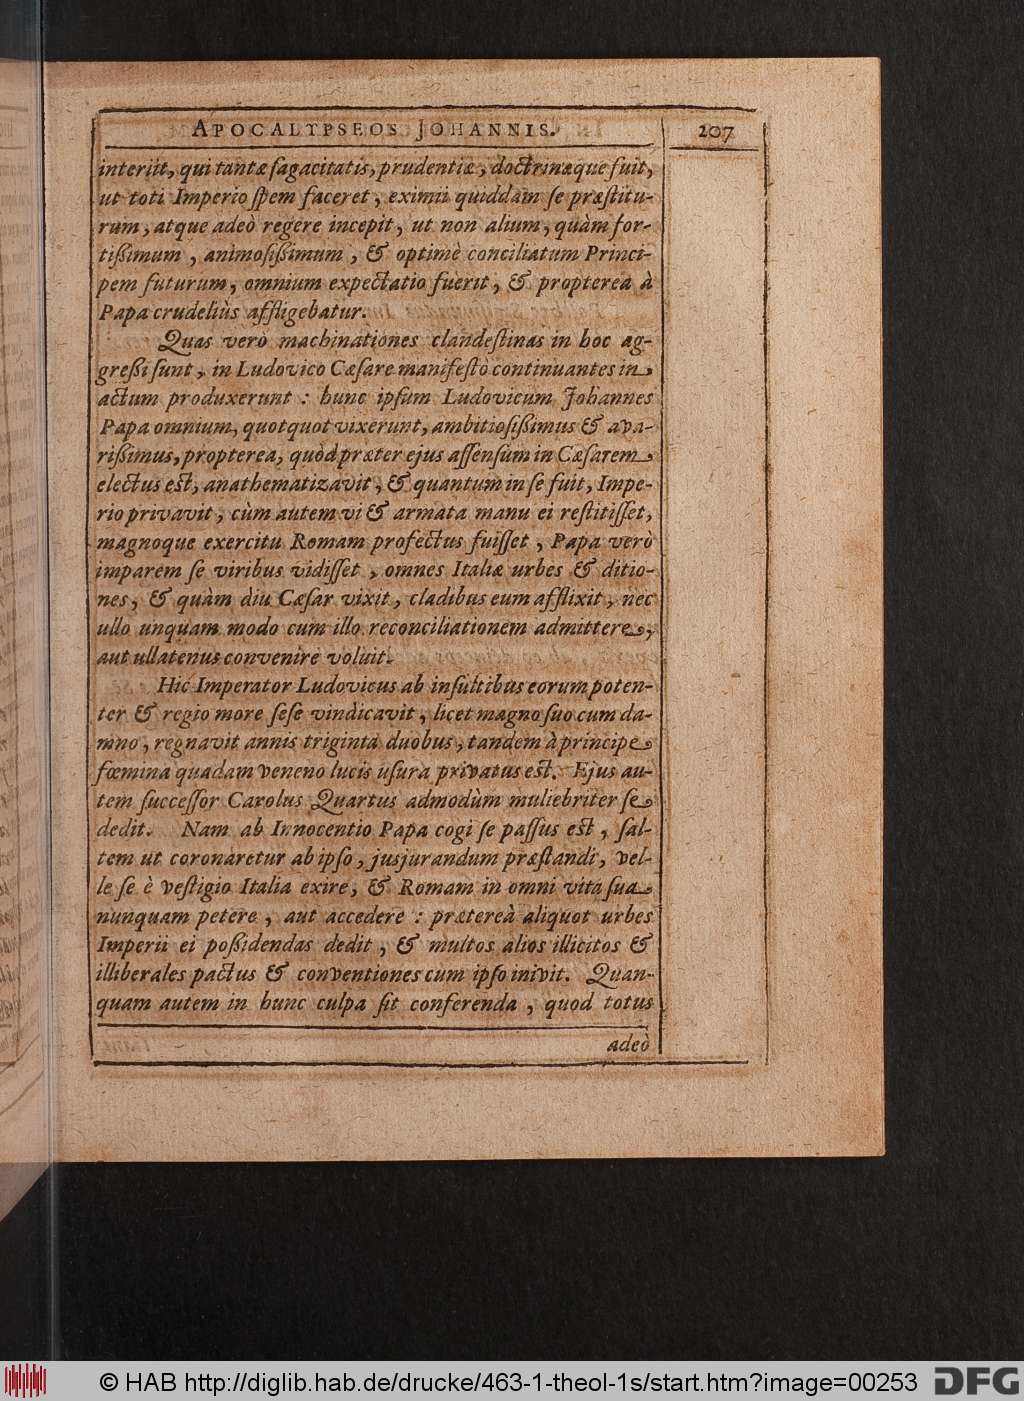 APOCALYPSEOS JOHANNIS. 207
interiit, qui tantæ ſagacitatis, prudentiæ, doctrinæque fuit,
ut toti Imperio ſpem faceret, eximii quiddam ſe præſtitu-
rum, atque adeò regere incepit, ut non alium, quàm for-
tiſſimum, animoſiſſimum, & optimè conciliatum Princi-
pem futurum, omnium expectatio fuerit, & propterea à
Papa crudeliùs affligebatur.
Quas verò machinationes clandeſtinas in hoc ag-
greſſi ſunt, in Ludovico Cæſare manifeſtò continuantes in
actum produxerunt : hunc ipſum Ludovicum Johannes
Papa omnium, quotquot vixerunt, ambitioſiſſimus & ava-
riſſimus, propterea, quòd præter ejus aſſenſum in Cæſarem
electus eſt, anathematizavit, & quantum in ſe fuit, Impe-
rio privavit, cùm autem vi & armata manu ei reſtitiſſet,
magnoque exercitu Romam profectus fuiſſet, Papa verò
imparem ſe viribus vidiſſet, omnes Italiæ urbes & ditio-
nes, & quàm diu Cæſar vixit, cladibus eum afflixit, nec
ullo unquam modo cum illo reconciliationem admittere,
aut ullatenus convenire voluit.
Hic Imperator Ludovicus ab inſultibus eorum poten-
ter & regio more ſeſe vindicavit, licet magno ſuo cum da-
mno, regnavit annis triginta duobus, tandem à principe
fœmina quadam veneno lucis uſura privatus eſt. Ejus au-
tem ſucceſſor Carolus Quartus admodùm muliebriter ſe
dedit. Nam ab Innocentio Papa cogi ſe paſſus eſt, ſal-
tem ut coronaretur ab ipſo, jusjurandum præſtandi, vel-
le ſe è veſtigio Italia exire, & Romam in omni vita ſua
nunquam petere, aut accedere : prætereà aliquot urbes
Imperii ei poſſidendas dedit, & multos alios illicitos &
illiberales pactus & conventiones cum ipſo inivit. Quan-
quam autem in hunc culpa ſit conferenda, quod totus
adeò
© HAB http://diglib.hab.de/drucke/463-1-theol-1s/start.htm?image=00253 DFG